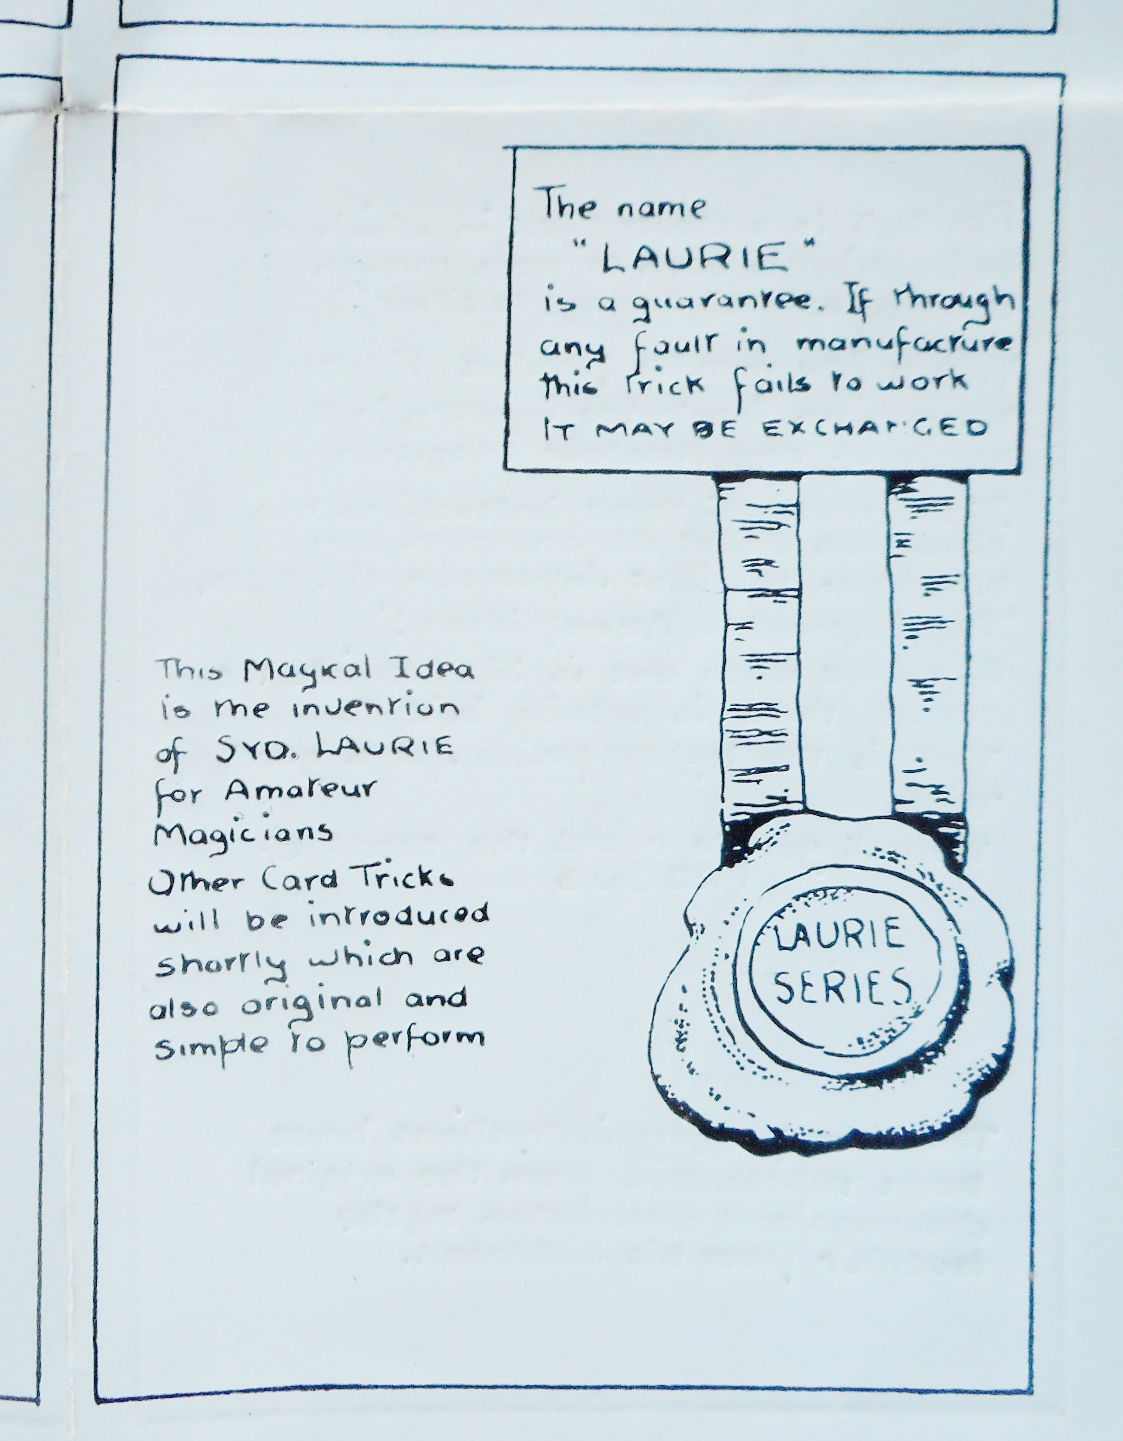 The name
"LAURIE"
is a guarantee. If through
any fault in manufacture
this Trick fails to work
IT MAY BE EXCHANGED
This Magical Idea
is the invention
of SYD. LAURIE
for Amateur
Magicians
Other Card Tricks
will be introduced
shortly which are
also original and
simple to perform
LAURIE
SERIES